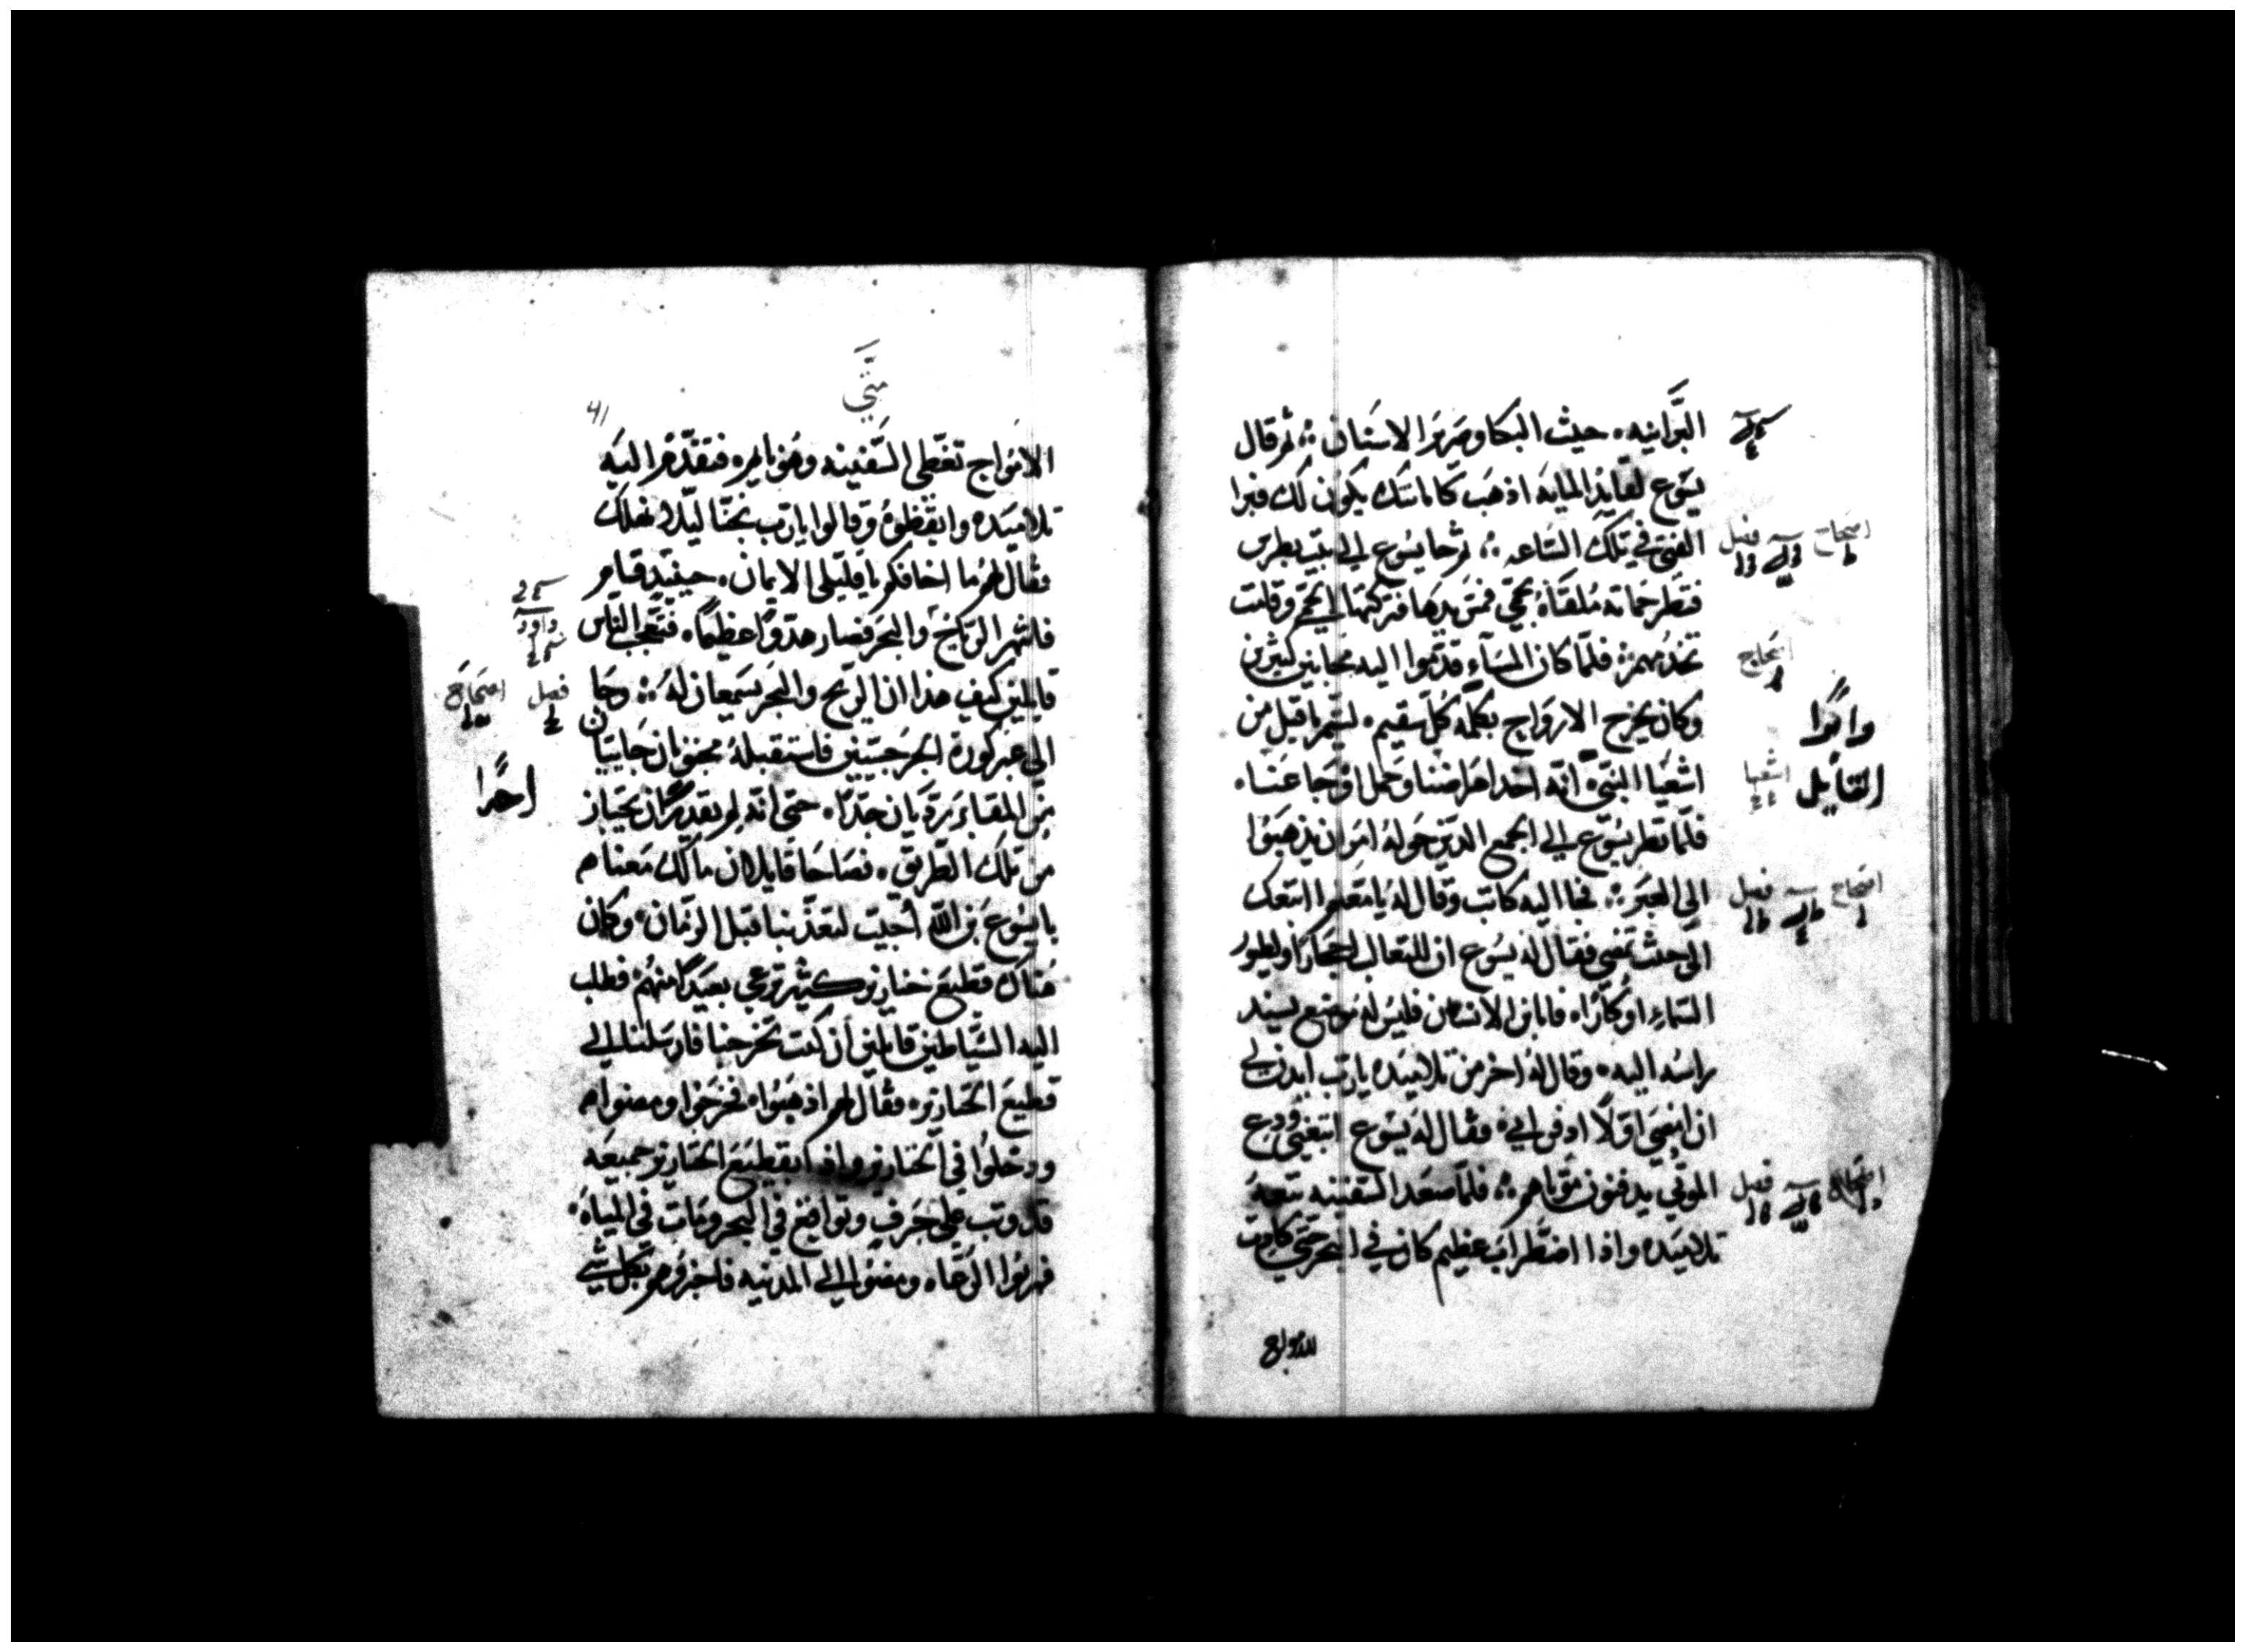 البرانيه. حيث البكا وصرير الاسنان ؞ ثم قال
يسوع لقايد المايه اذهب كامانتك يكون لك فبرا
الفتى في تلك الساعه ؞ ثم جا يسوع الى بيت بطرس
فنظر حماته ملقاه بحمى فمس يدها فتركتها الحمى وقامت
تخدمهم ؞ فلما كان المساء قدموا اليه مجانين كثيرين
وكان يخرج الارواح بكلمه كل سقيم. ليتم ما قيل من
اشعيا النبي انه اخذ امراضنا وحمل اوجاعنا.
فلما نظر يسوع الى الجمع الذين حوله امر ان يذهبوا
الى العبر ؞ فجا اليه كاتب وقال له يا معلم اتبعك
الى حيث تمضي فقال له يسوع ان للثعالب اجحارا ولطيور
السماء اوكارا. فاما ابن الانسان فليس له موضع يسند
راسه اليه. وقال له اخر من تلاميذه يا رب ايدن لي
ان امضي اولا ادفن ابي. فقال له يسوع اتبعني ودع
الموتى يدفنون موتاهم ؞ فلما صعد السفينه تبعه
تلاميذه واذا اضطراب عظيم كان في البحر حتى كادت
واتوا
القايل
اشعيا
اصحاح
فصل
متى
41
الامواج تغطي السفينه وهو نايم. فتقدم اليه
تلاميذه وايقظوه وقالوا يا رب نجنا ليلا نهلك
فقال لهم ما اخافكم يا قليلي الايمان. حينيذ قام
فانتهر الريح والبحر فصار هدوا عظيما. فتعجب الناس
قايلين كيف هذا ان الريح والبحر يسمعان له ؞ وجا
الى عبر كورة الجرجسيين فاستقبله مجنونان جاييان
من المقابر رديان جدا. حتى انه لم يقدر ان يجتاز
من تلك الطريق. فصاحا قايلان ما لك معنا
يا يسوع بن الله أجيت لتعذبنا قبل الزمان. وكان
هناك قطيع خنازير كثير ترعى بعيدا منهم فطلب
اليه الشياطين قايلين ان كنت تخرجنا فارسلنا الى
قطيع الخنازير. فقال لهم اذهبوا. فخرجوا ومضوا
ودخلوا في الخنازير واذا بقطيع الخنازير جميعه
قد وثب على جرف وتواقع في البحر ومات في المياه.
فهربوا الرعاه ومضوا الى المدينه فاخبروهم بكل شي
داود
فصل
اصحاح
احدا